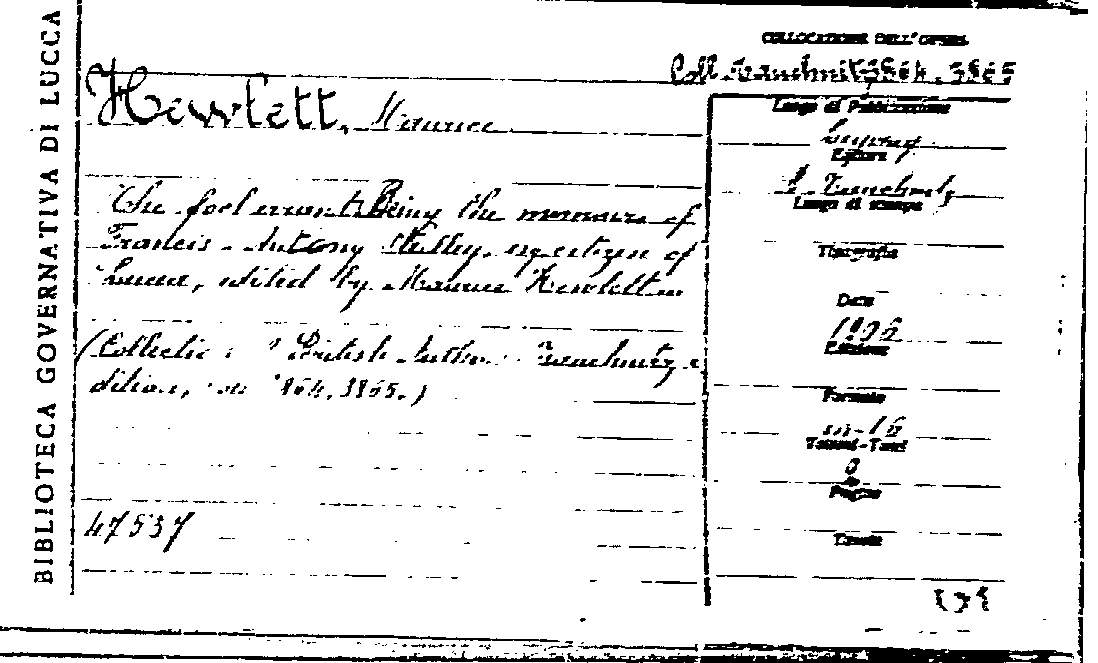 BIBLIOTECA GOVERNATIVA DI LUCCA
COLLOCAZIONE DELL'OPERA
Coll. Tauchnitz 3864. 3865
Hewlett, Maurice
The fool errant. Being the memoirs of
Francis-Antony Strelley, esq. citizen of
Lucca, edited by Maurice Hewlett
(Collection British Author Tauchnitz e
dition, 3864. 3865.)
47537
Luogo di Pubblicazione
Editore
B. Tauchnitz
Luogo di stampa
Tipografia
Data
Edizione
Formato
in-16
Tomi-Tomi
Pagine
Tavole